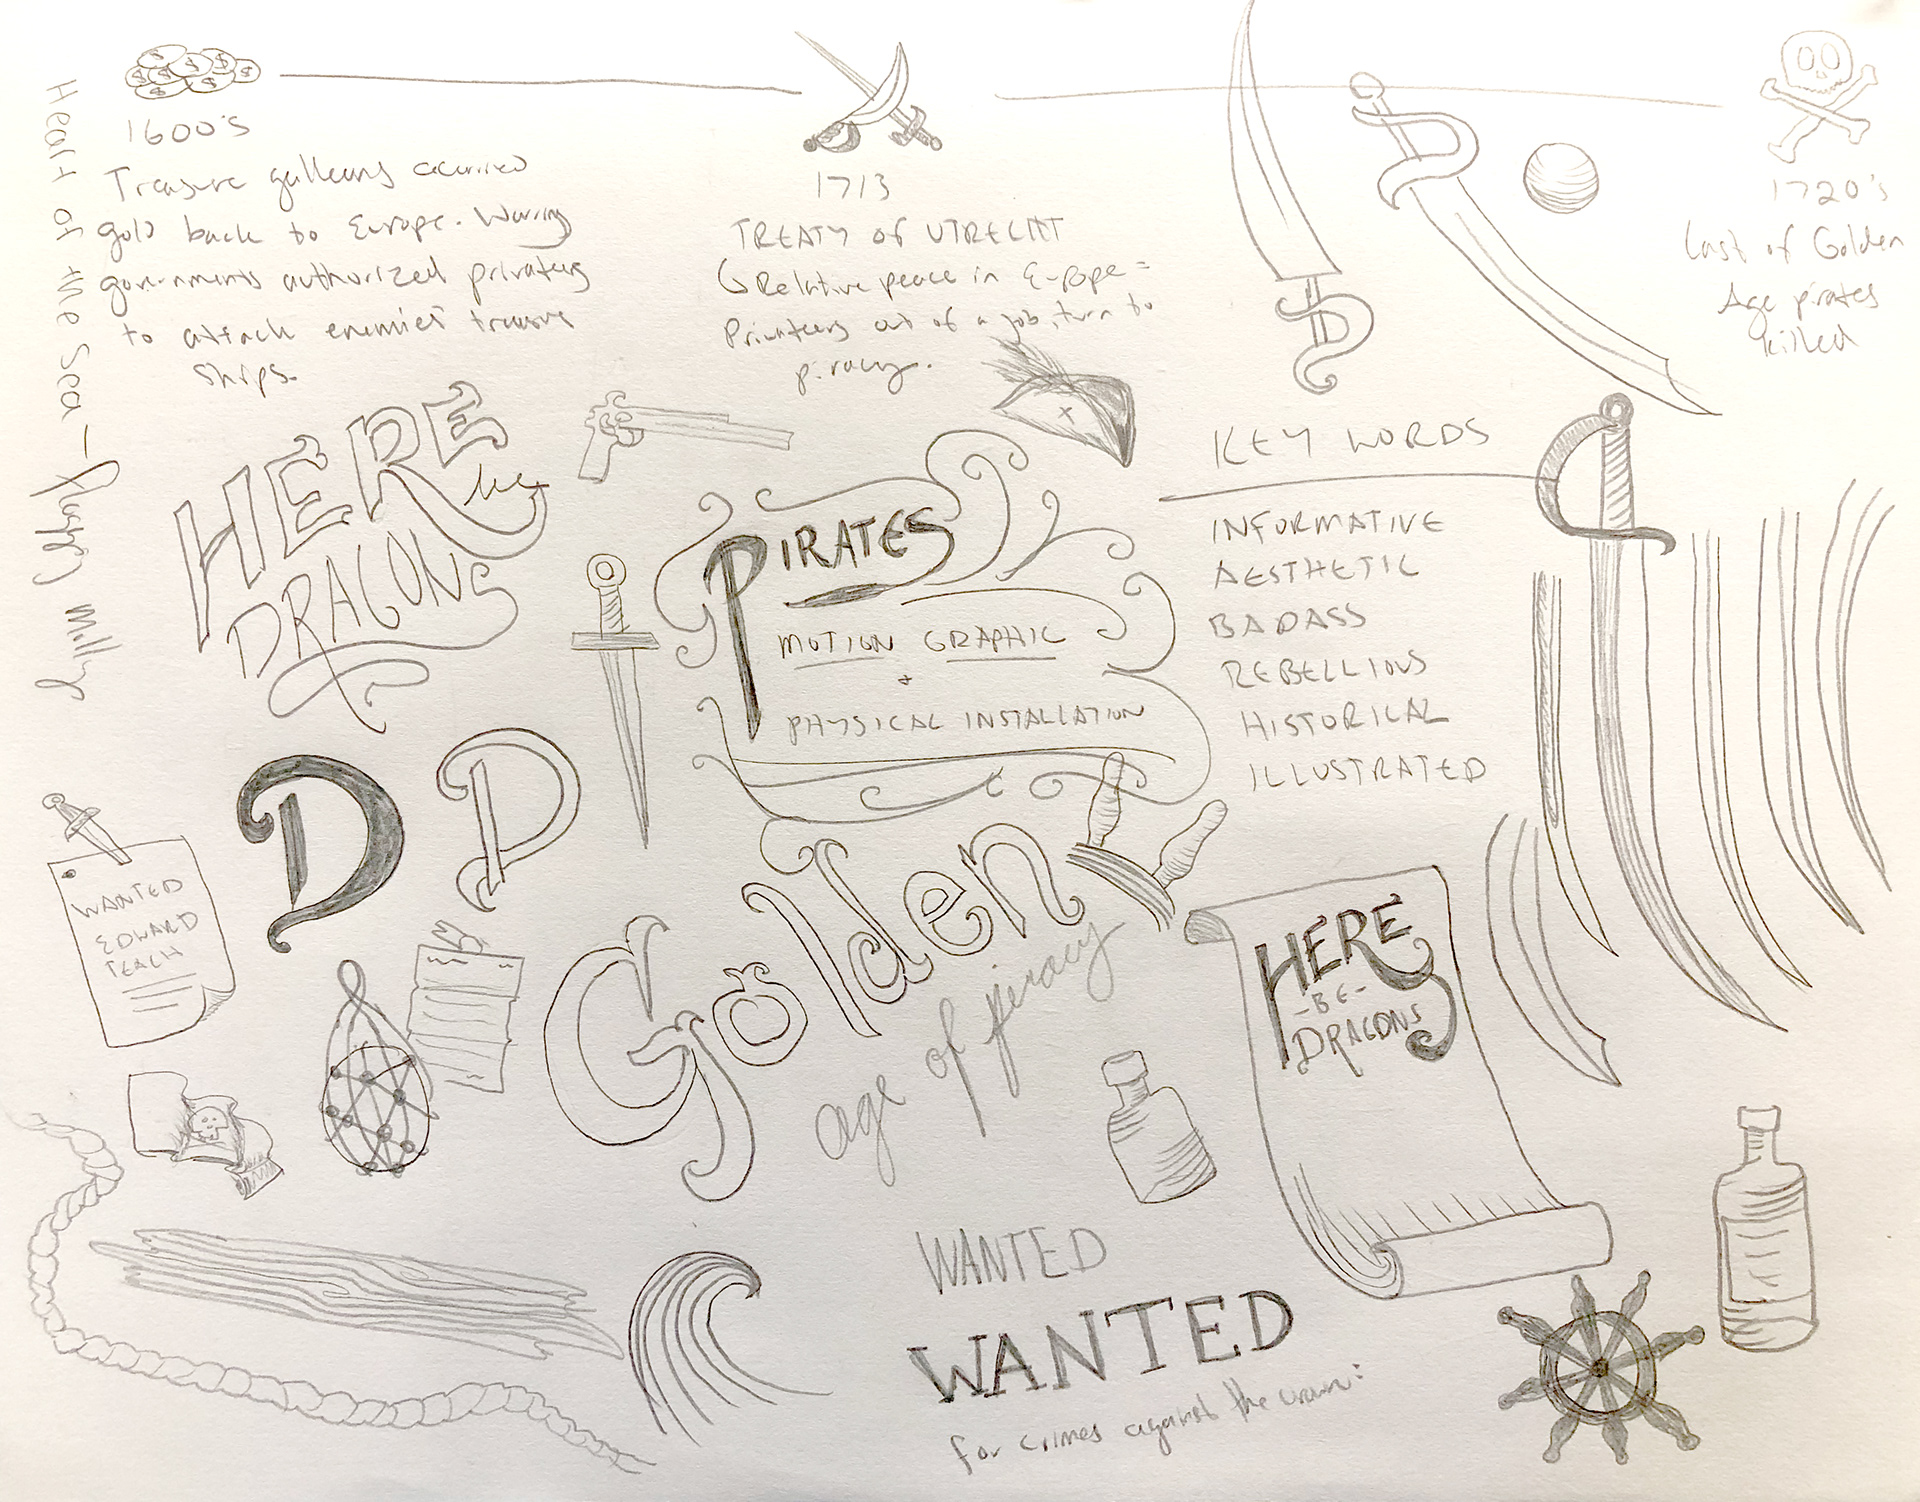 1600's
Treasure galleons carried
gold back to Europe. Warring
governments authorized privateers
to attack enemies' treasure
ships.
1713
TREATY of UTRECHT
Relative peace in Europe =
Privateers out of a job, turn to
piracy.
1720's
Last of Golden
Age pirates
killed
Heart of the Sea - Milly
HERE
be
DRAGONS
PIRATES
MOTION GRAPHIC
+
PHYSICAL INSTALLATION
KEY WORDS
INFORMATIVE
AESTHETIC
BADASS
REBELLIOUS
HISTORICAL
ILLUSTRATED
D D
WANTED
EDWARD
TEACH
Golden
age of piracy
HERE
-BE-
DRAGONS
WANTED
WANTED
for crimes against the crown: